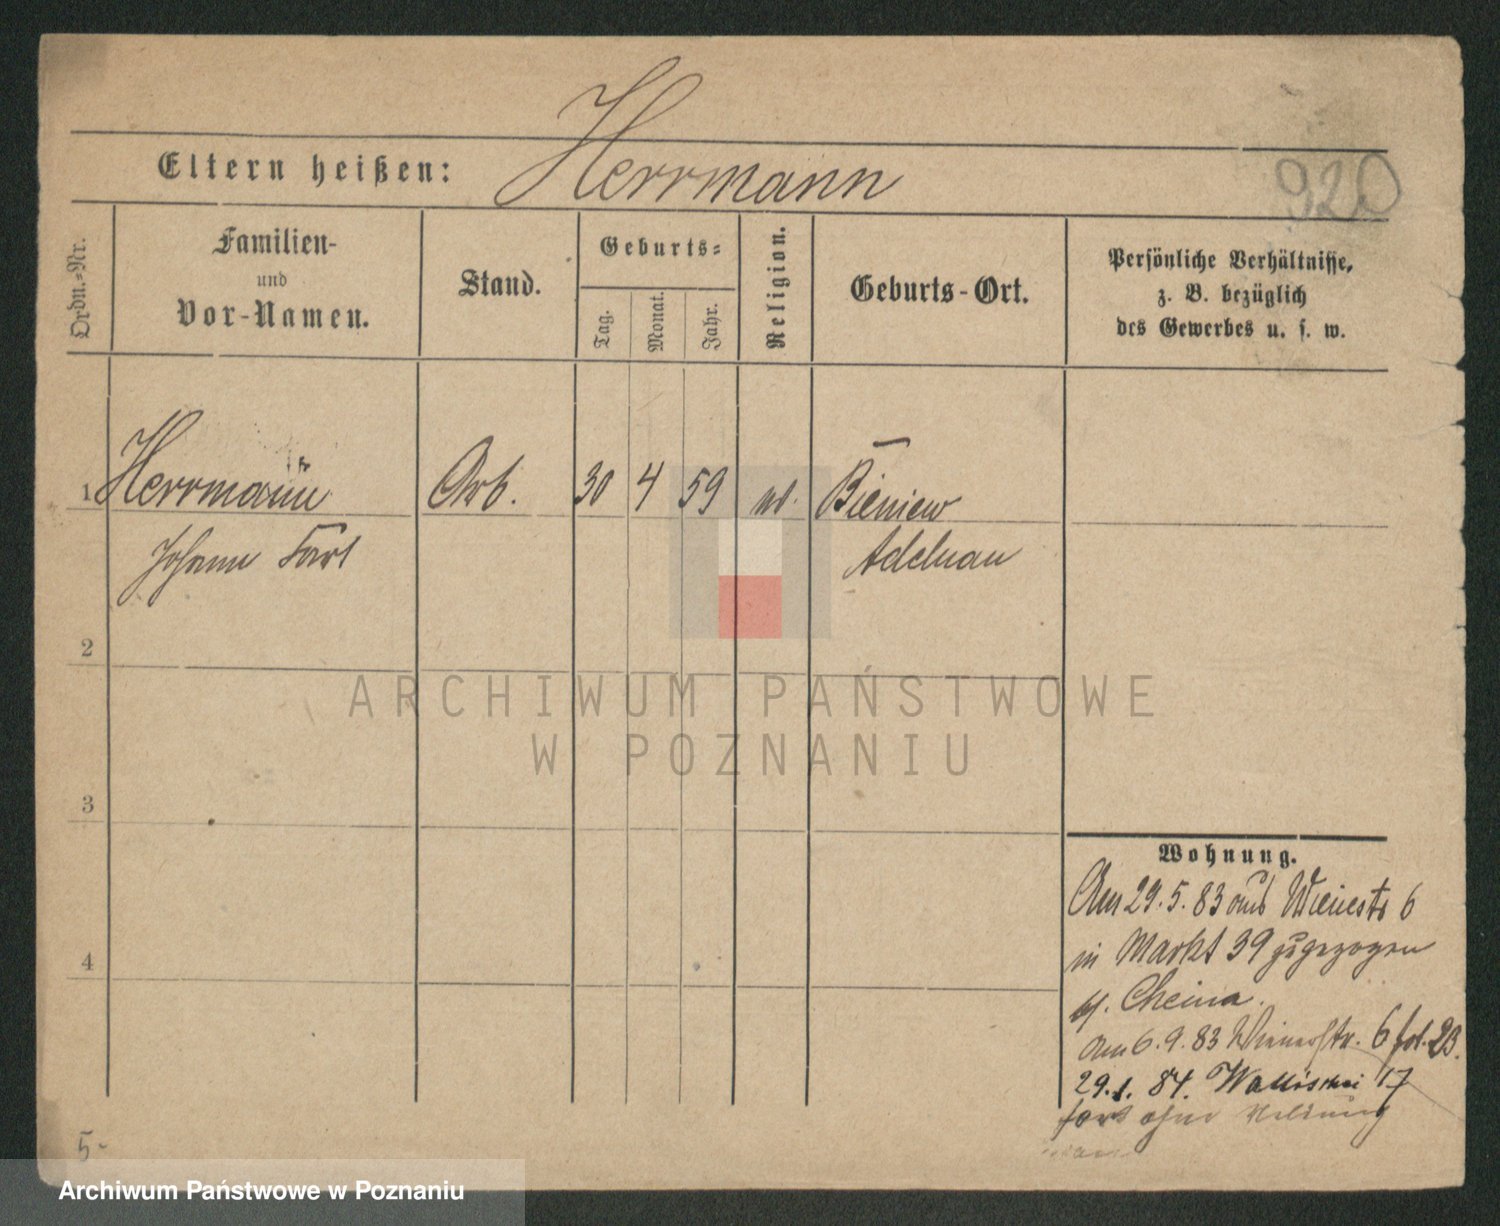 Herrmann
Eltern heißen:
920
Ordn.-Nr.
Familien-
und
Vor-Namen.
Stand.
Geburts-
Tag.
Monat.
Jahr.
Religion.
Geburts-Ort.
Persönliche Verhältnisse,
z. B. bezüglich
des Gewerbes u. s. w.
1 Herrmann Arb. 30 4 59 Bieniew
Johann Adelnau
2
ARCHIWUM PAŃSTWOWE
W POZNANIU
3
Wohnung.
Am 29.5.83 aus 6
in Markt 39 zugezogen
Cheina.
Am 6.9.83 Wienerstr. 6 fol. 23.
4
29.1.84. Wallischei 17
fort ohne Meldung
5-
Archiwum Państwowe w Poznaniu